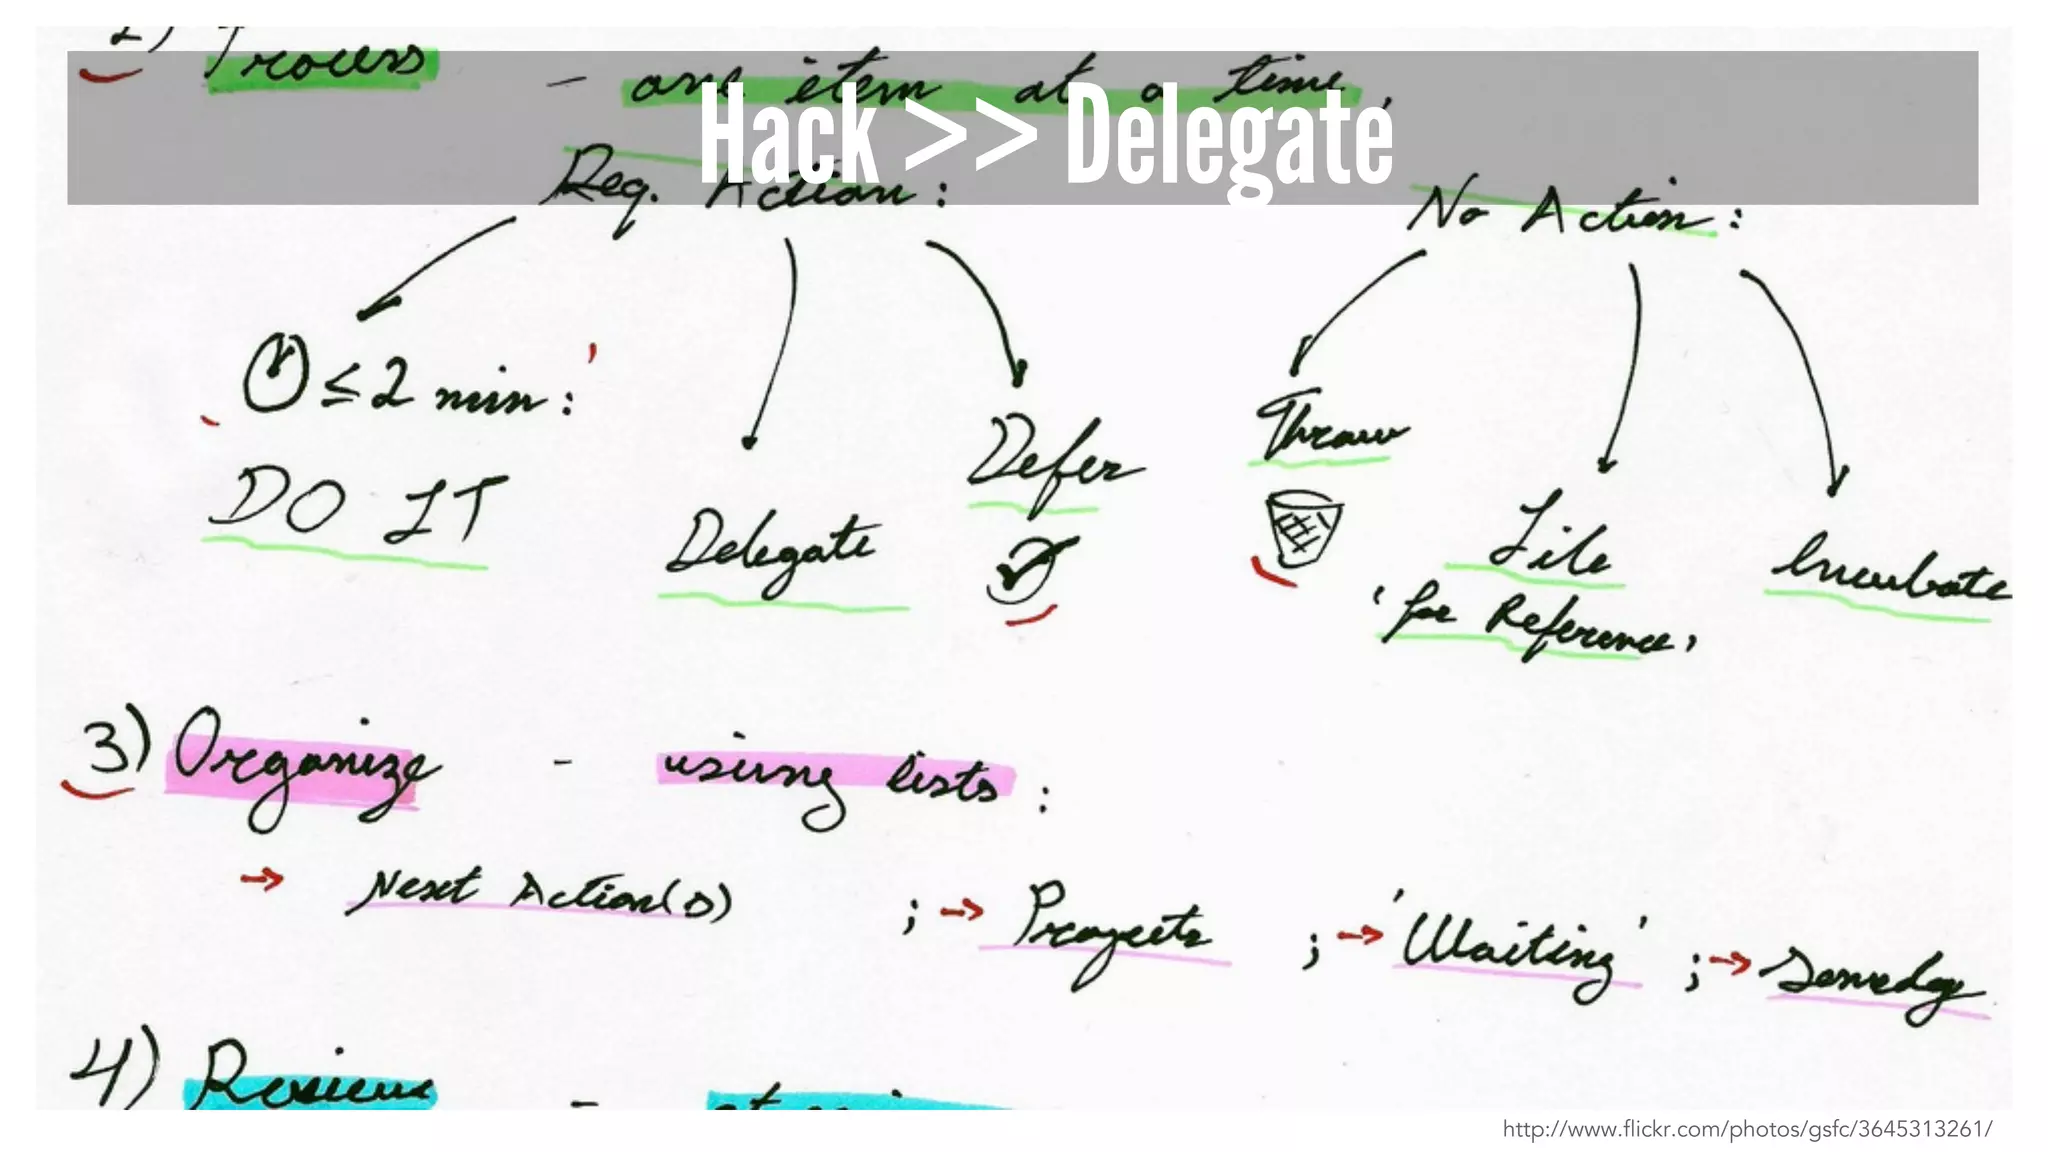 2) Process - one item at a time.
Hack >> Delegate
Req. Action:
No Action:
≤ 2 min:
DO IT
Delegate
Defer
Throw
File
'for Reference,
Incubate
3) Organize - using lists:
→ Next Action(s) ; → Projects ; → 'Waiting' ; → Someday
4) Review -
http://www.flickr.com/photos/gsfc/3645313261/